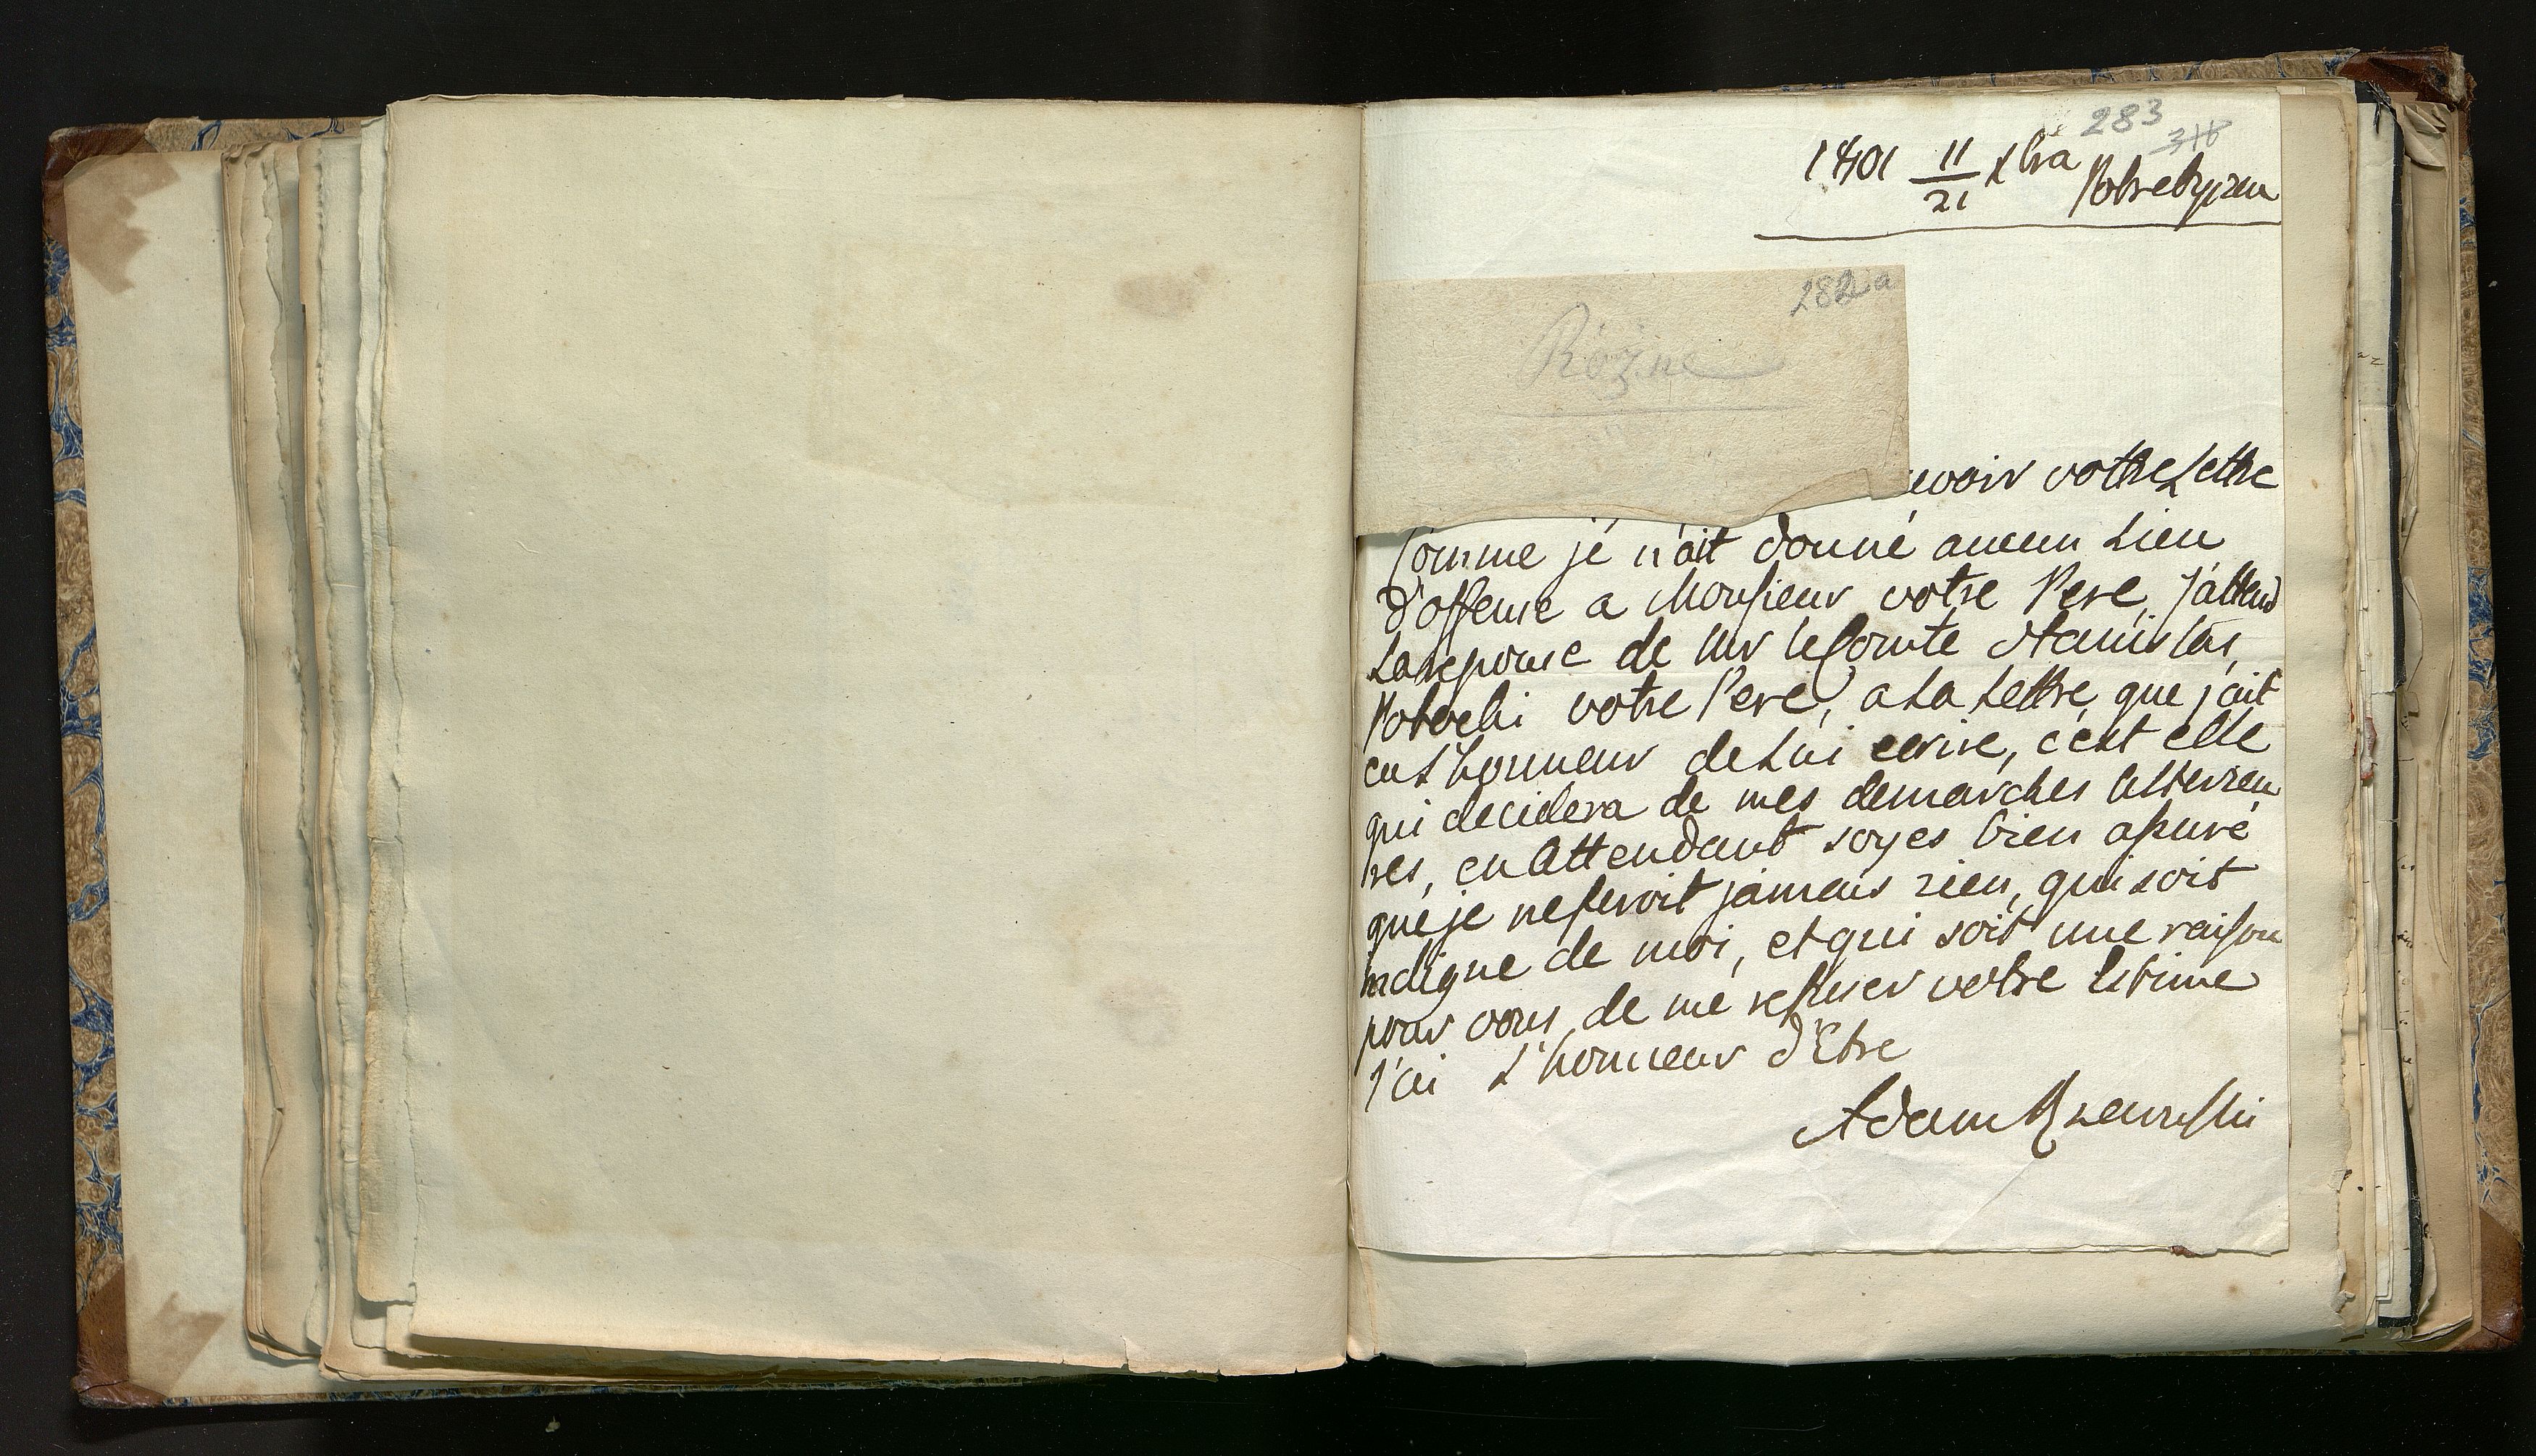 283
318
1801 11/21 Xbra Pohrebyszcze
282a
Różne
evoir votre Lettre
Comme je n'ait donné aucun Lieu
d'offense a Monsieur votre Pere, j'attend
La reponse de Mr le Comte Stanislas,
Potocki votre Pere, a La Lettre, que j'ait
eu L'honneur de Lui ecrire, c'est elle
qui decidera de mes demarches ulterieu
res, en attendant soyes bien assuré
que je ne feroit jamais rien, qui soit
indigne de moi, et qui soit une raison
pour vous, de me refuser votre Estime
J'ai L'honneur d'Etre
Adam Rzewuski